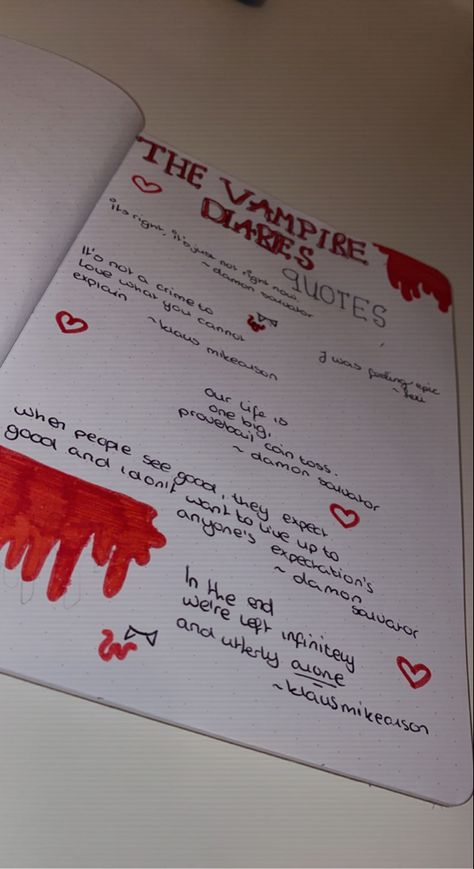 THE VAMPIRE
DIARIES
QUOTES
it's right, it's just not right now.
~ damon salvator
It's not a crime to
love what you cannot
explain
~klaus mikearson
I was feeling epic
Our life is
one big,
proverbail coin toss.
~ damon salvator
when people see good, they expect
good and i don't want to live up to
anyone's expectation's
~ damon
salvator
In the end
we're left infinitely
and utterly alone
~klaus mikearson